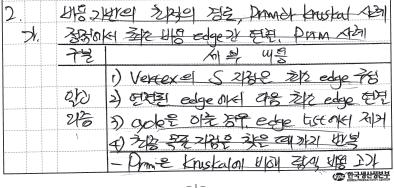 2. 비용 기반의 최적의 경로, Prim과 Kruskal 사례
가. 정점에서 최소 비용 edge간 연결, Prim 사례
구분 세부 내용
알고리즘
1) Vertex의 S 지정은 최소 edge 구성
2) 연결된 edge에서 다음 최소 edge 연결
3) cycle을 이룰 경우 edge list에서 제거
4) 최종 목표 지점을 찾을 때까지 반복
- Prim은 Kruskal에 비해 탐색 비용 고가
한국생산성본부